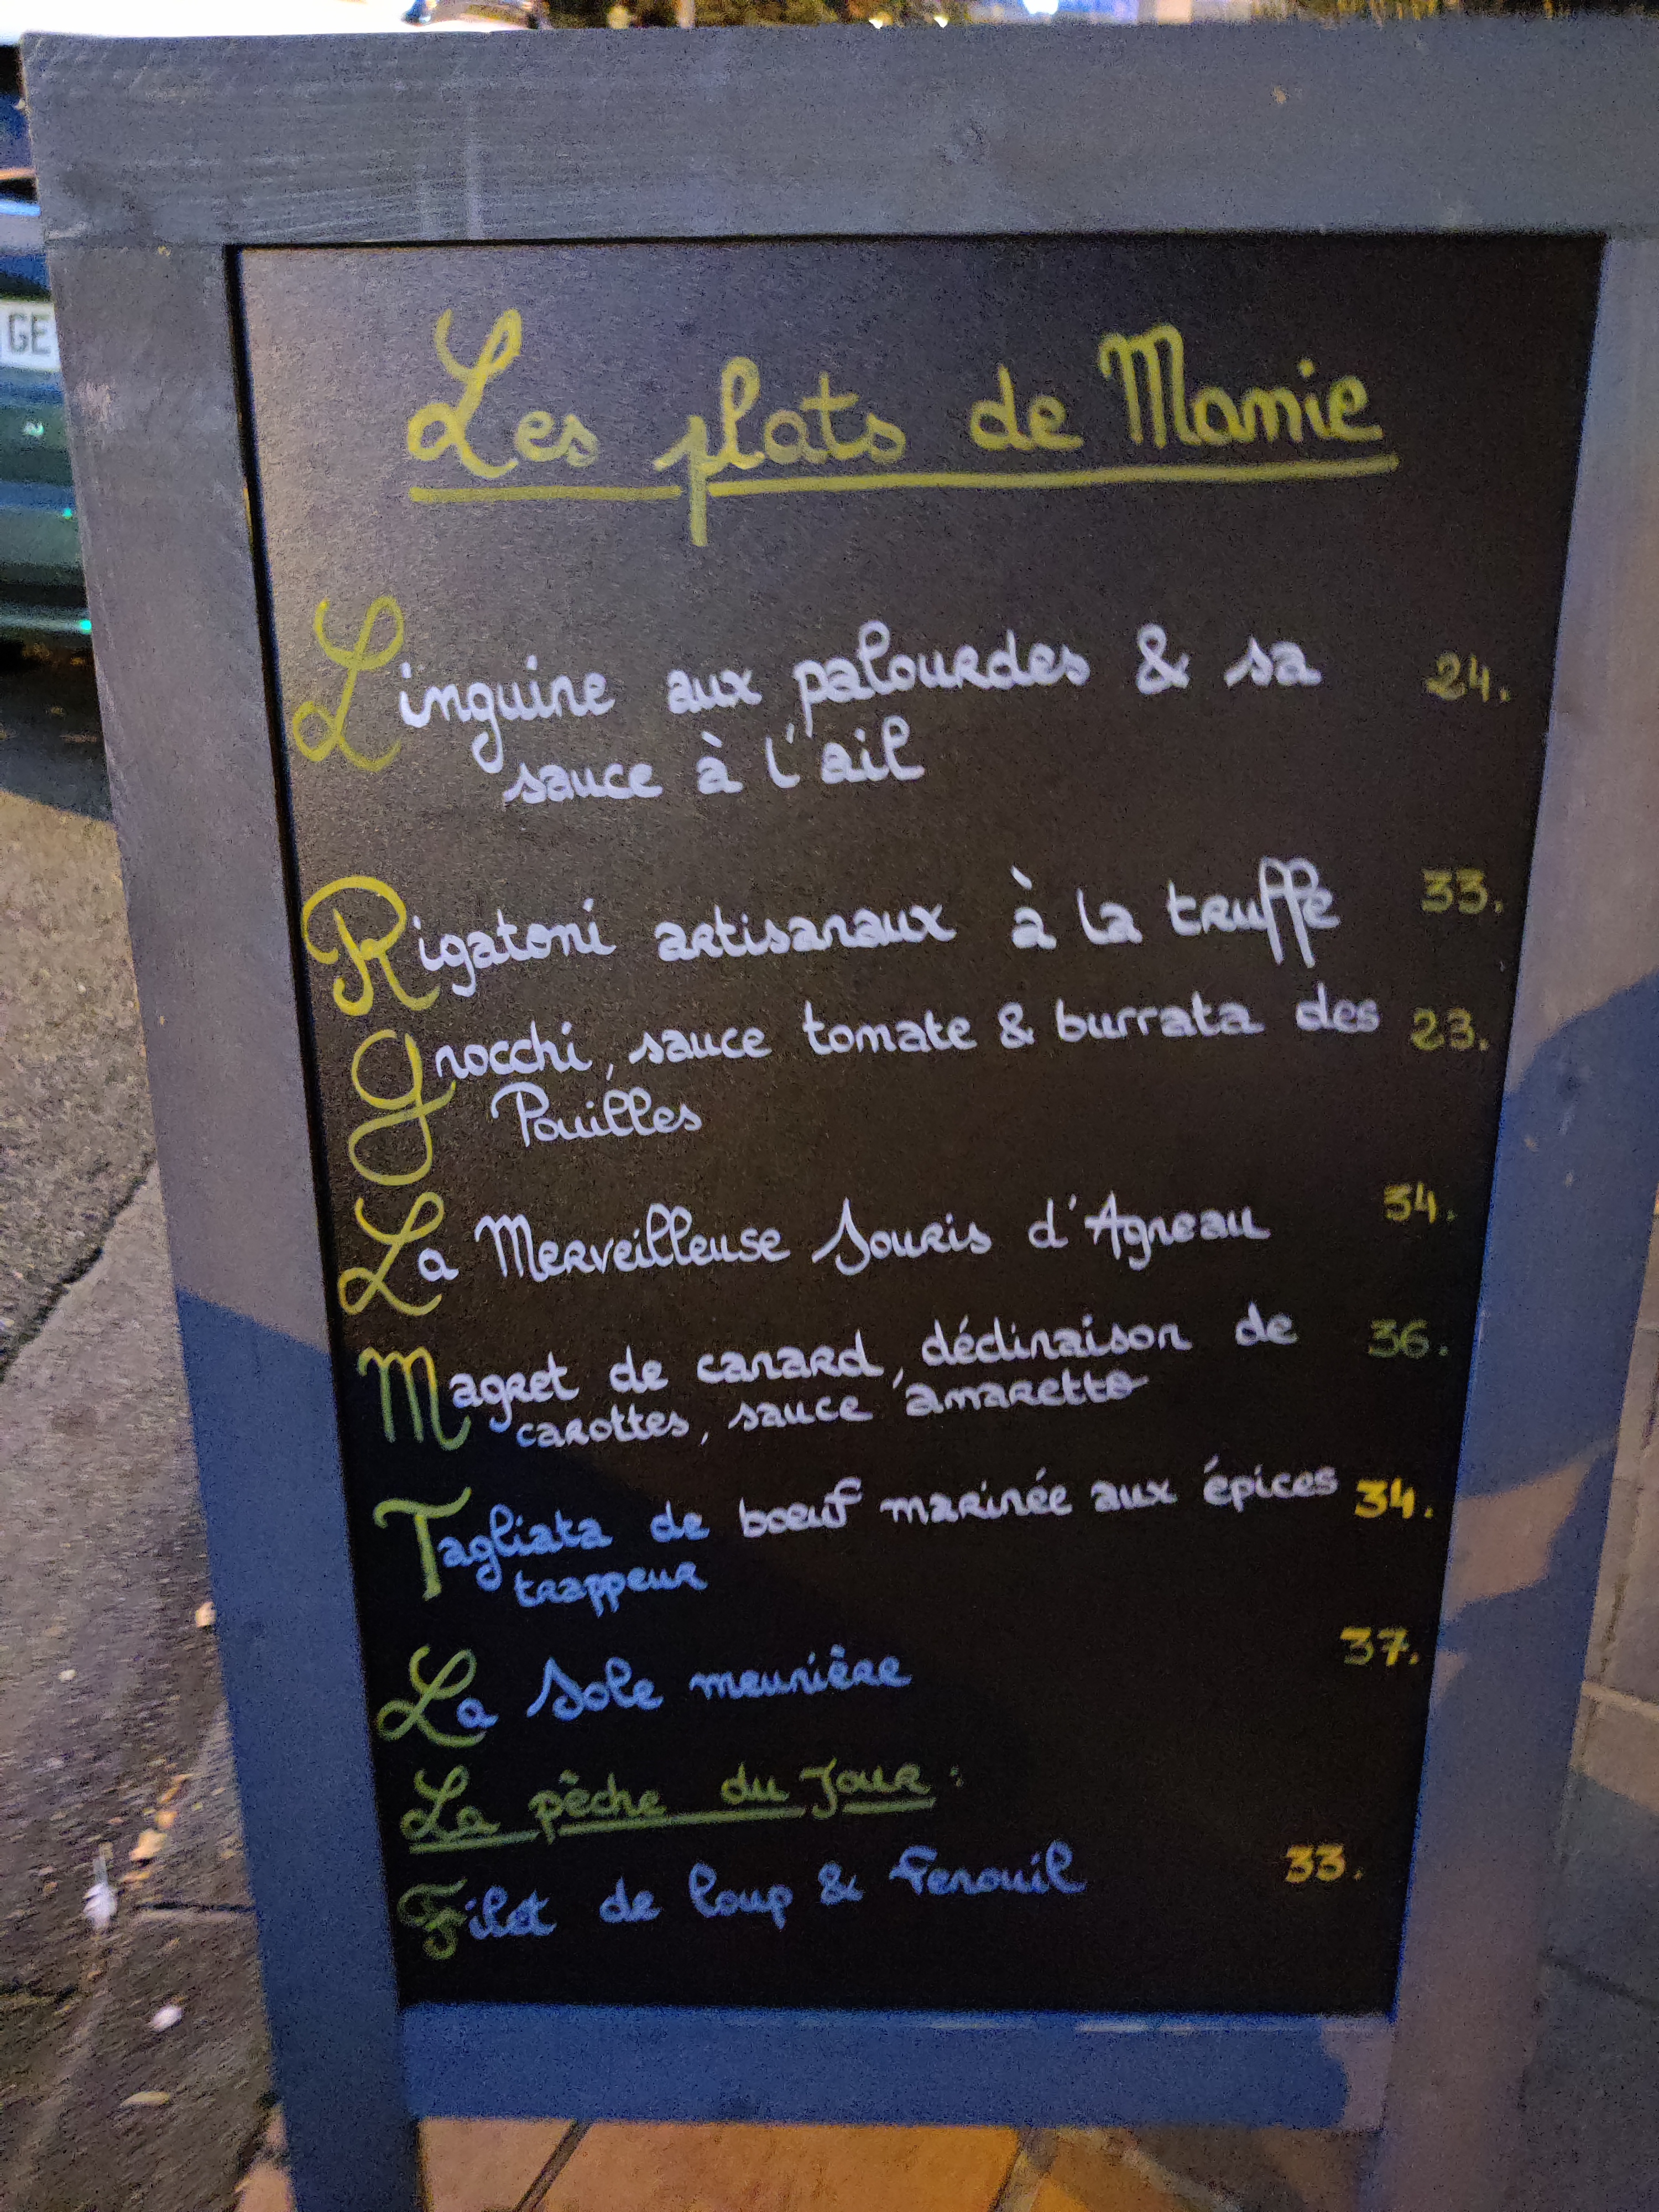 GE
Les plats de Mamie
Linguine aux palourdes & sa 24.
sauce à l'ail
Rigatoni artisanaux à la truffe 33.
Gnocchi, sauce tomate & burrata des 23.
Pouilles
La Merveilleuse Souris d'Agneau 34.
Magret de canard, déclinaison de 36.
carottes, sauce amaretto
Tagliata de boeuf marinée aux épices 34.
trappeur
La Sole meunière 37.
La pêche du Jour :
Filet de loup & fenouil 33.